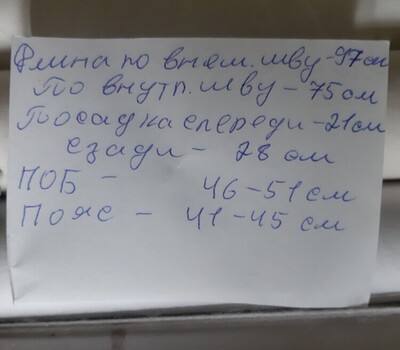 Длина по внеш. шву-97см
По внутр. шву - 75см
Посадка спереди-21см
сзади - 28 см
ПОБ - 46-51см
Пояс - 41-45 см